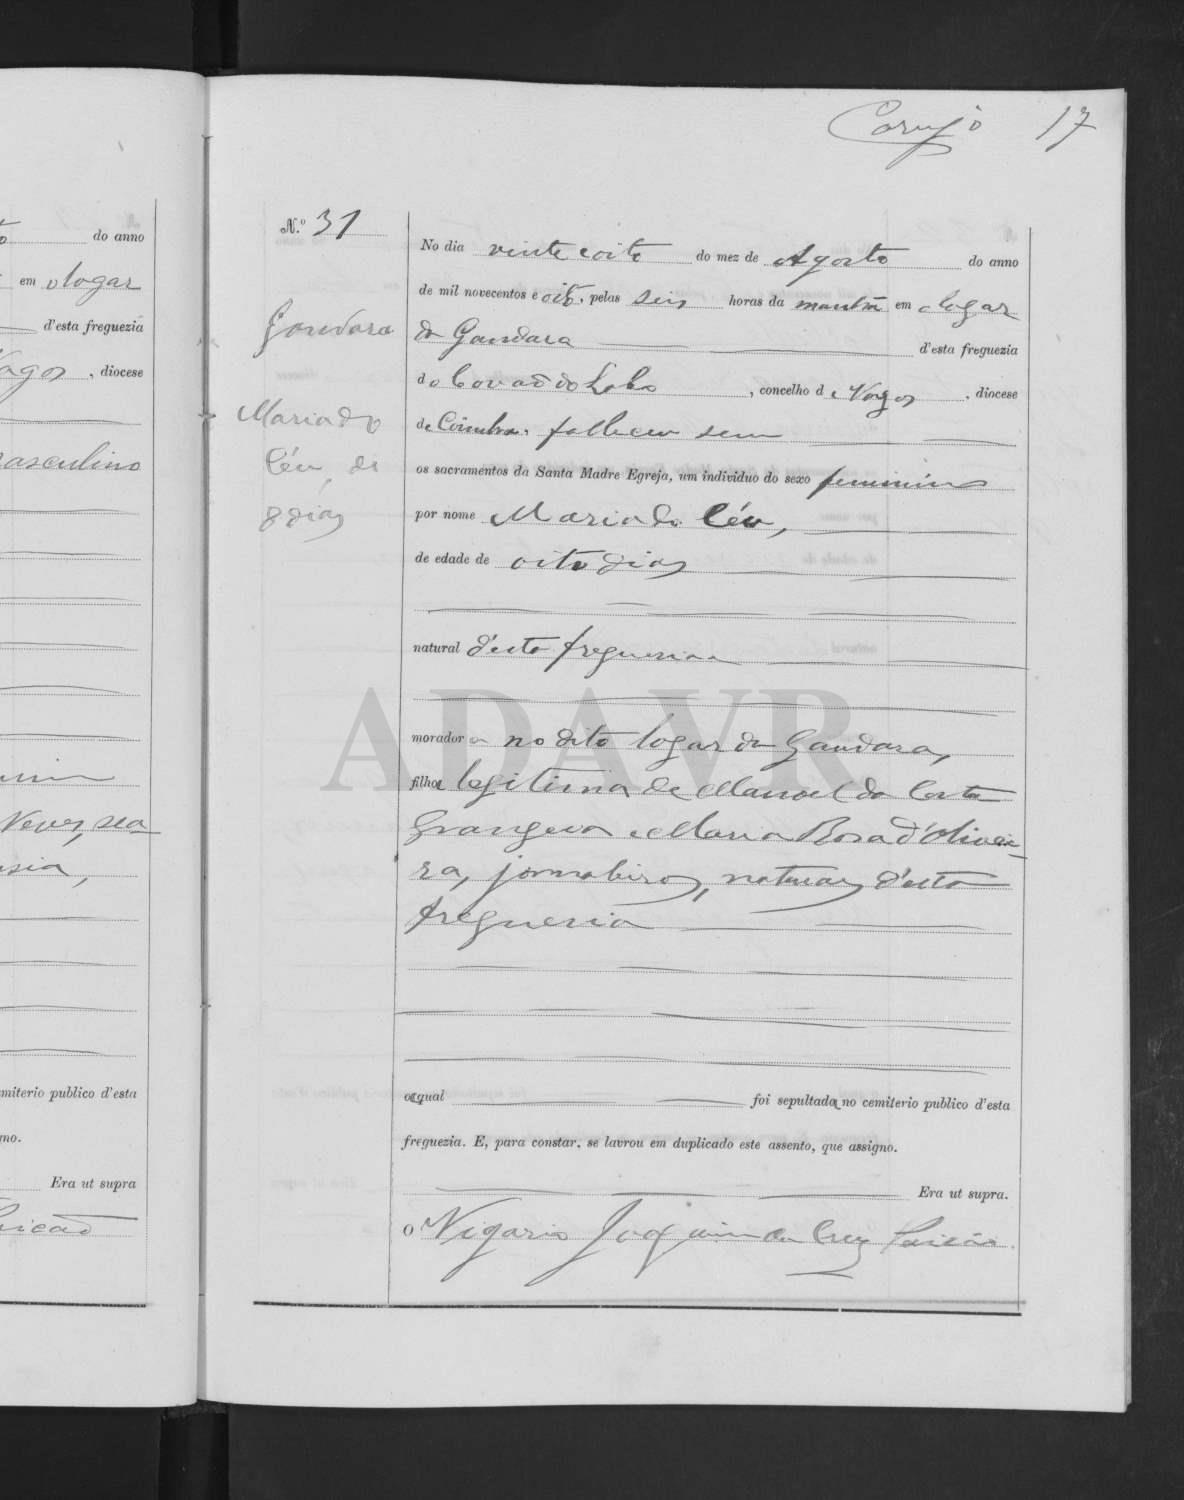 17
to do anno
em o logar
d'esta freguezia
Vagos, diocese
masculino
Neves, sea
emiterio publico d'esta
no.
Era ut supra
N.º 31
Gandara
Maria do
Céu, de
8 dias
No dia vinte e oito do mez de Agosto do anno
de mil novecentos e oito, pelas seis horas da manhã em o logar
da Gandara d'esta freguezia
do Covão do Lobo, concelho de Vagos, diocese
de Coimbra, falleceu sem
os sacramentos da Santa Madre Egreja, um individuo do sexo feminino
por nome Maria do Céu,
de edade de oito dias
natural d'esta freguesia
morador a no dito logar da Gandara,
filha legitima de Manoel da Costa
Grangeia e Maria Rosa d'Olivei-
ra, jornaleiros, naturaes d'esta
freguesia
a qual foi sepultada no cemiterio publico d'esta
freguezia. E, para constar, se lavrou em duplicado este assento, que assigno.
Era ut supra.
O Vigario Joaquim da Cruz
ADAVR